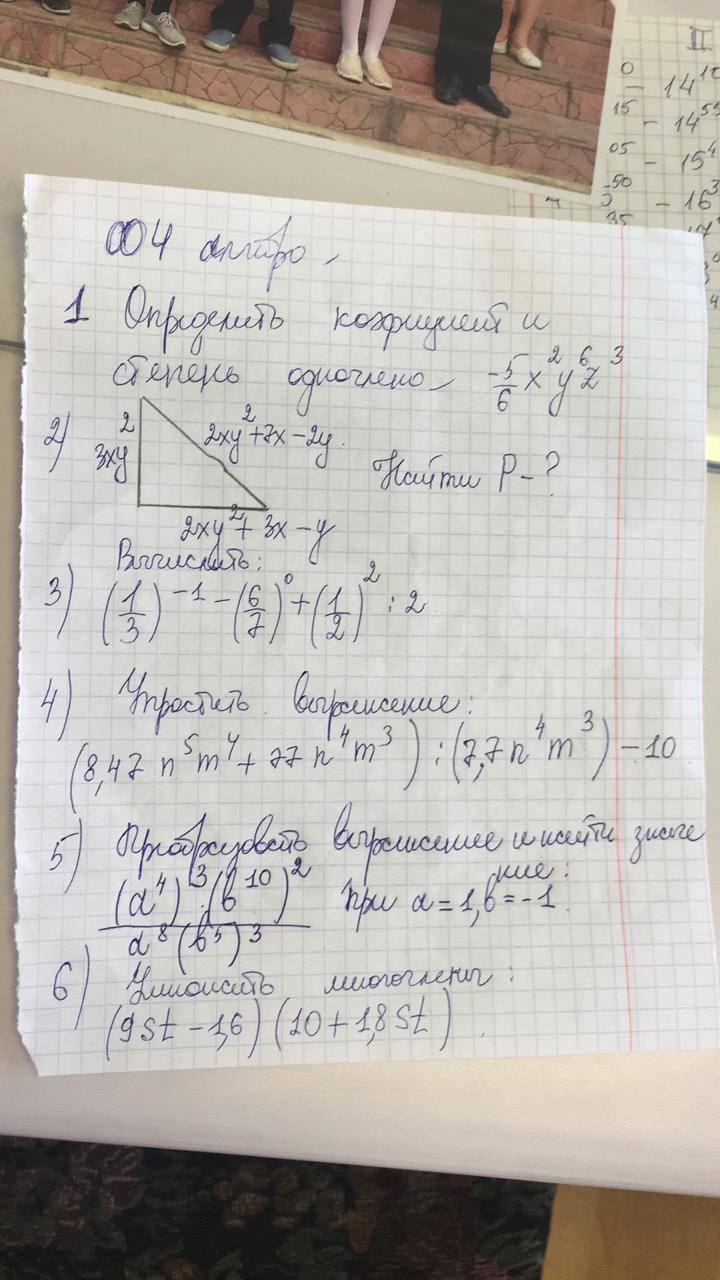 II
0 - 14¹⁰
15 - 14⁵⁵
05 - 15⁴
50 - 16³
35
1 Определить коэфициент и
степень одночлена -5/6 x²y⁶z³
2) 3xy² 2xy²+7x-2y. Найти P-?
2xy²+3x-y
Вычислить:
3) (1/3)⁻¹-(6/7)⁰+(1/2)²:2
4) Упростить выражение:
(8,47n⁵m⁴+77n⁴m³):(7,7n⁴m³)-10
5) Преобразовать выражение и найти значе
ние:
(a⁴)³·(b¹⁰)²/a⁸(b⁵)³ при a=1,b=-1.
6) Умножить многочлены:
(9st-1,6)(10+1,8st).